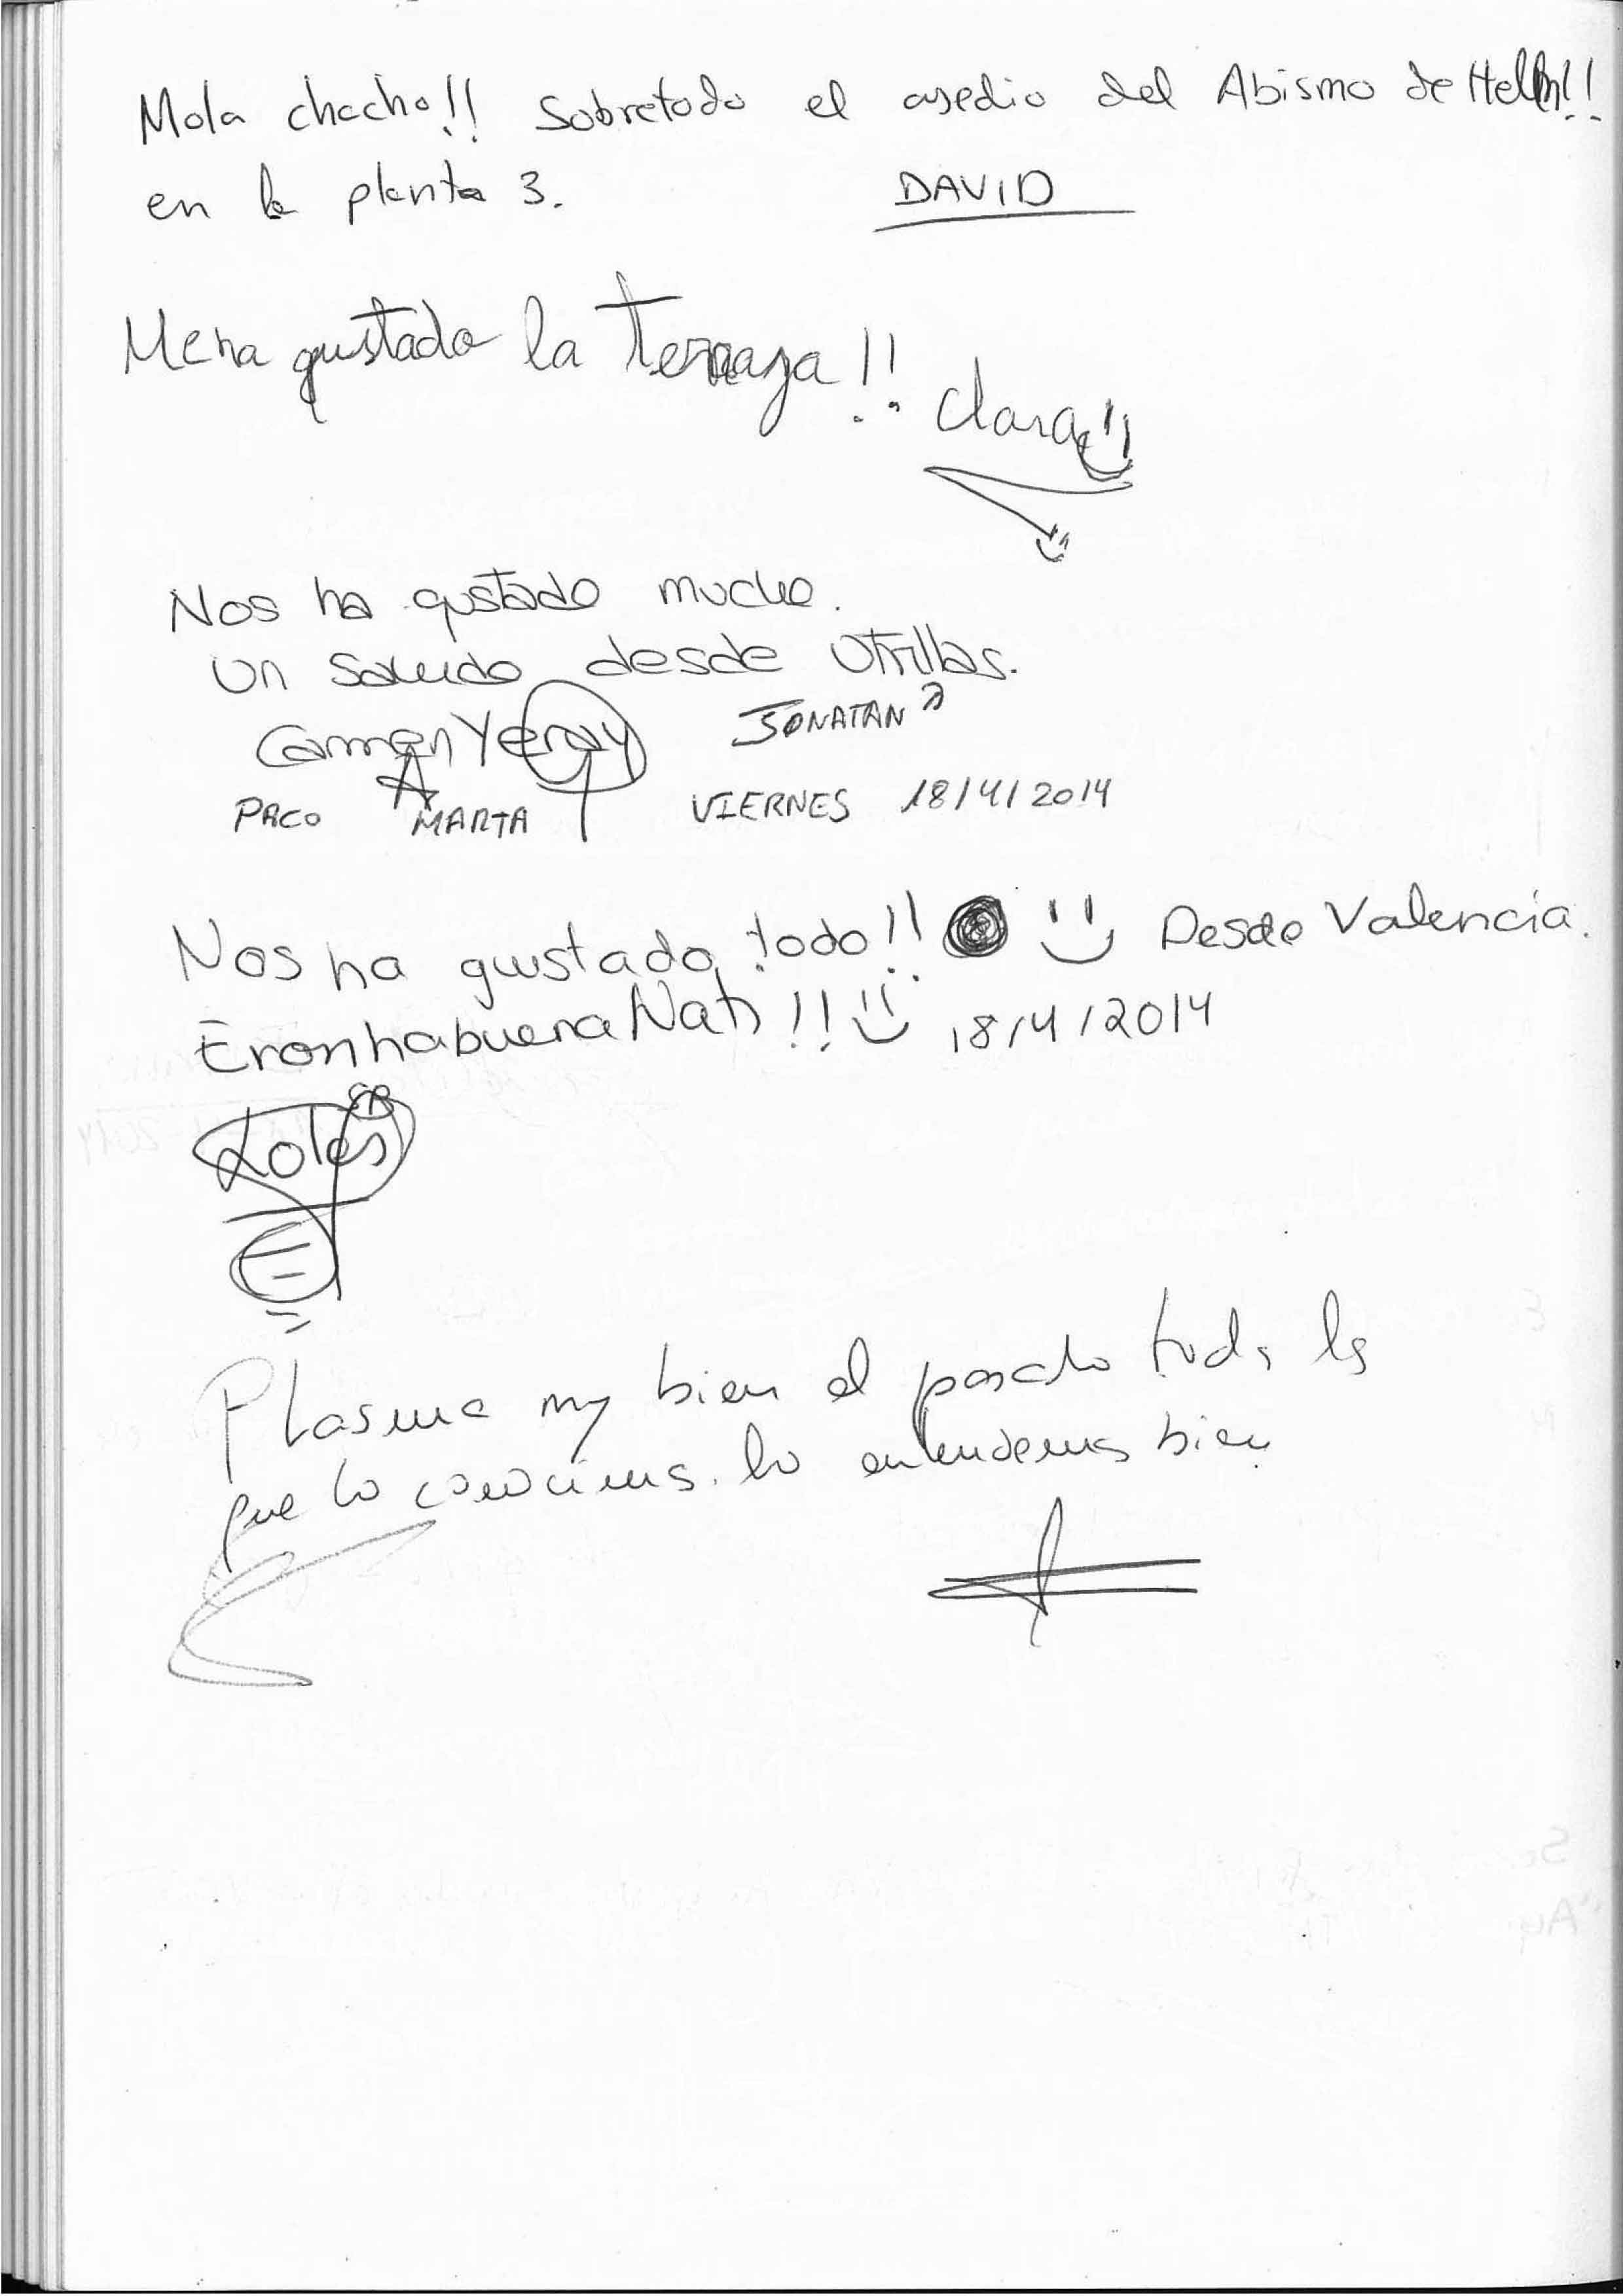 Mola chacho!! Sobretodo el asedio del Abismo de Helm!!
en la planta 3. DAVID
Me ha gustado la Terraza!! Clara
Nos ha gustado mucho.
Un saludo desde Utrillas.
Carmen Yeray JONATAN
PACO MARTA VIERNES 18/4/2014
Nos ha gustado todo!! Desde Valencia.
Eronhabuena Nati!! 18/4/2014
Plasma muy bien el pasado todos los
que lo conocimos. lo entendemos bien